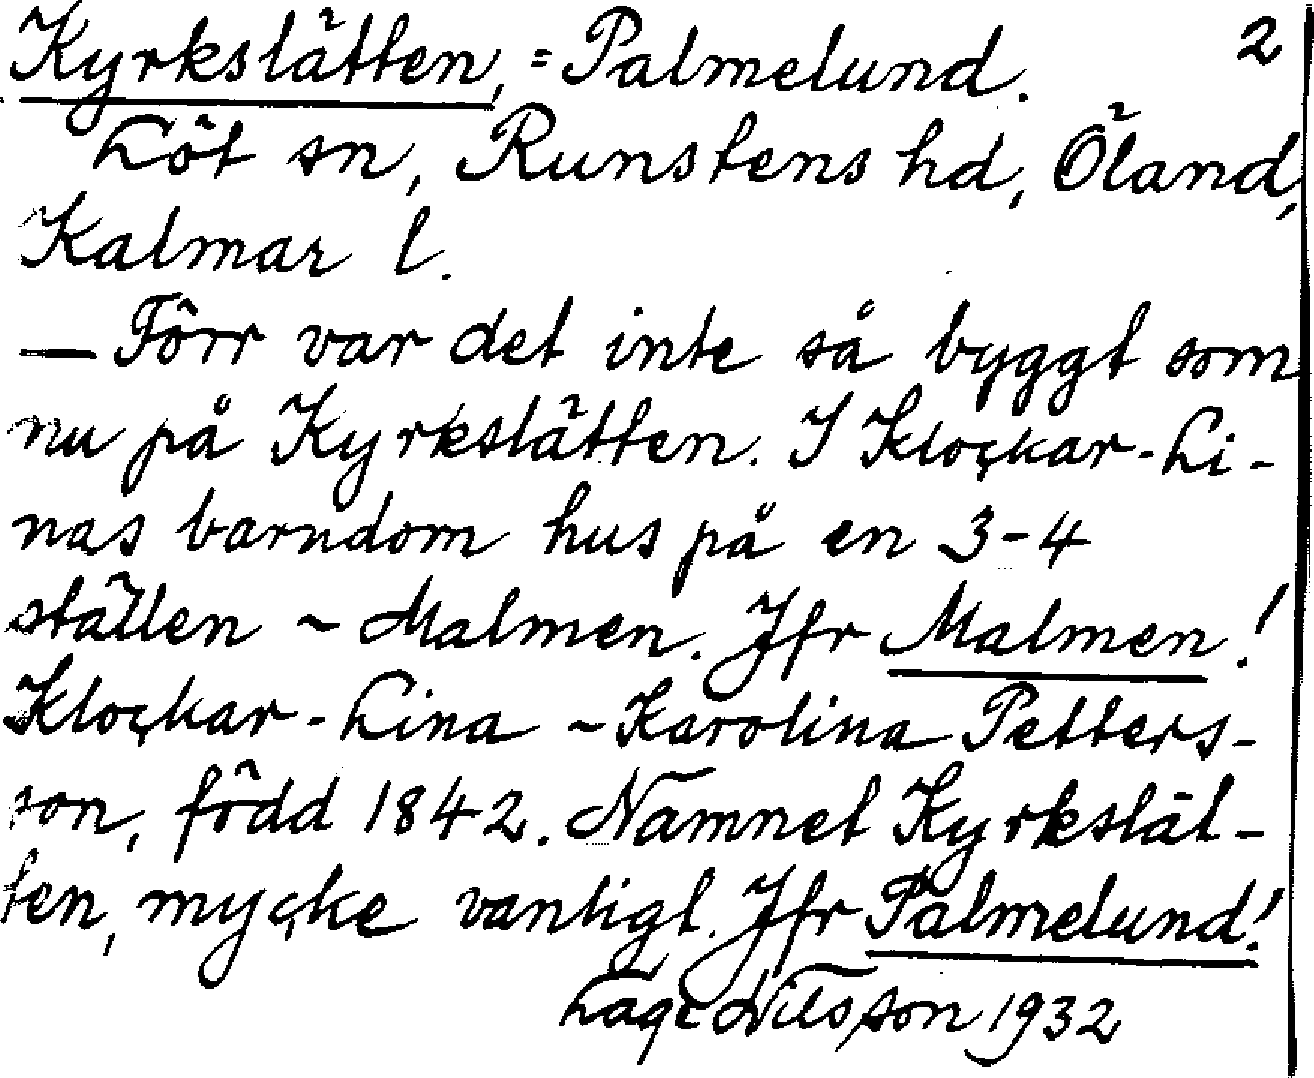 Kyrkslätten, = Palmelund. 2
Löt sn, Runstens hd, Öland,
Kalmar l.
— Förr var det inte så byggt som
nu på Kyrkslätten. I Klockar-Li-
nas barndom hus på en 3-4
ställen ~ Malmen. Jfr Malmen!
Klockar-Lina ~ Karolina Petters-
son, född 1842. Namnet Kyrkslät-
ten, mycke vanligt. Jfr Palmelund!
Nilsson 1932